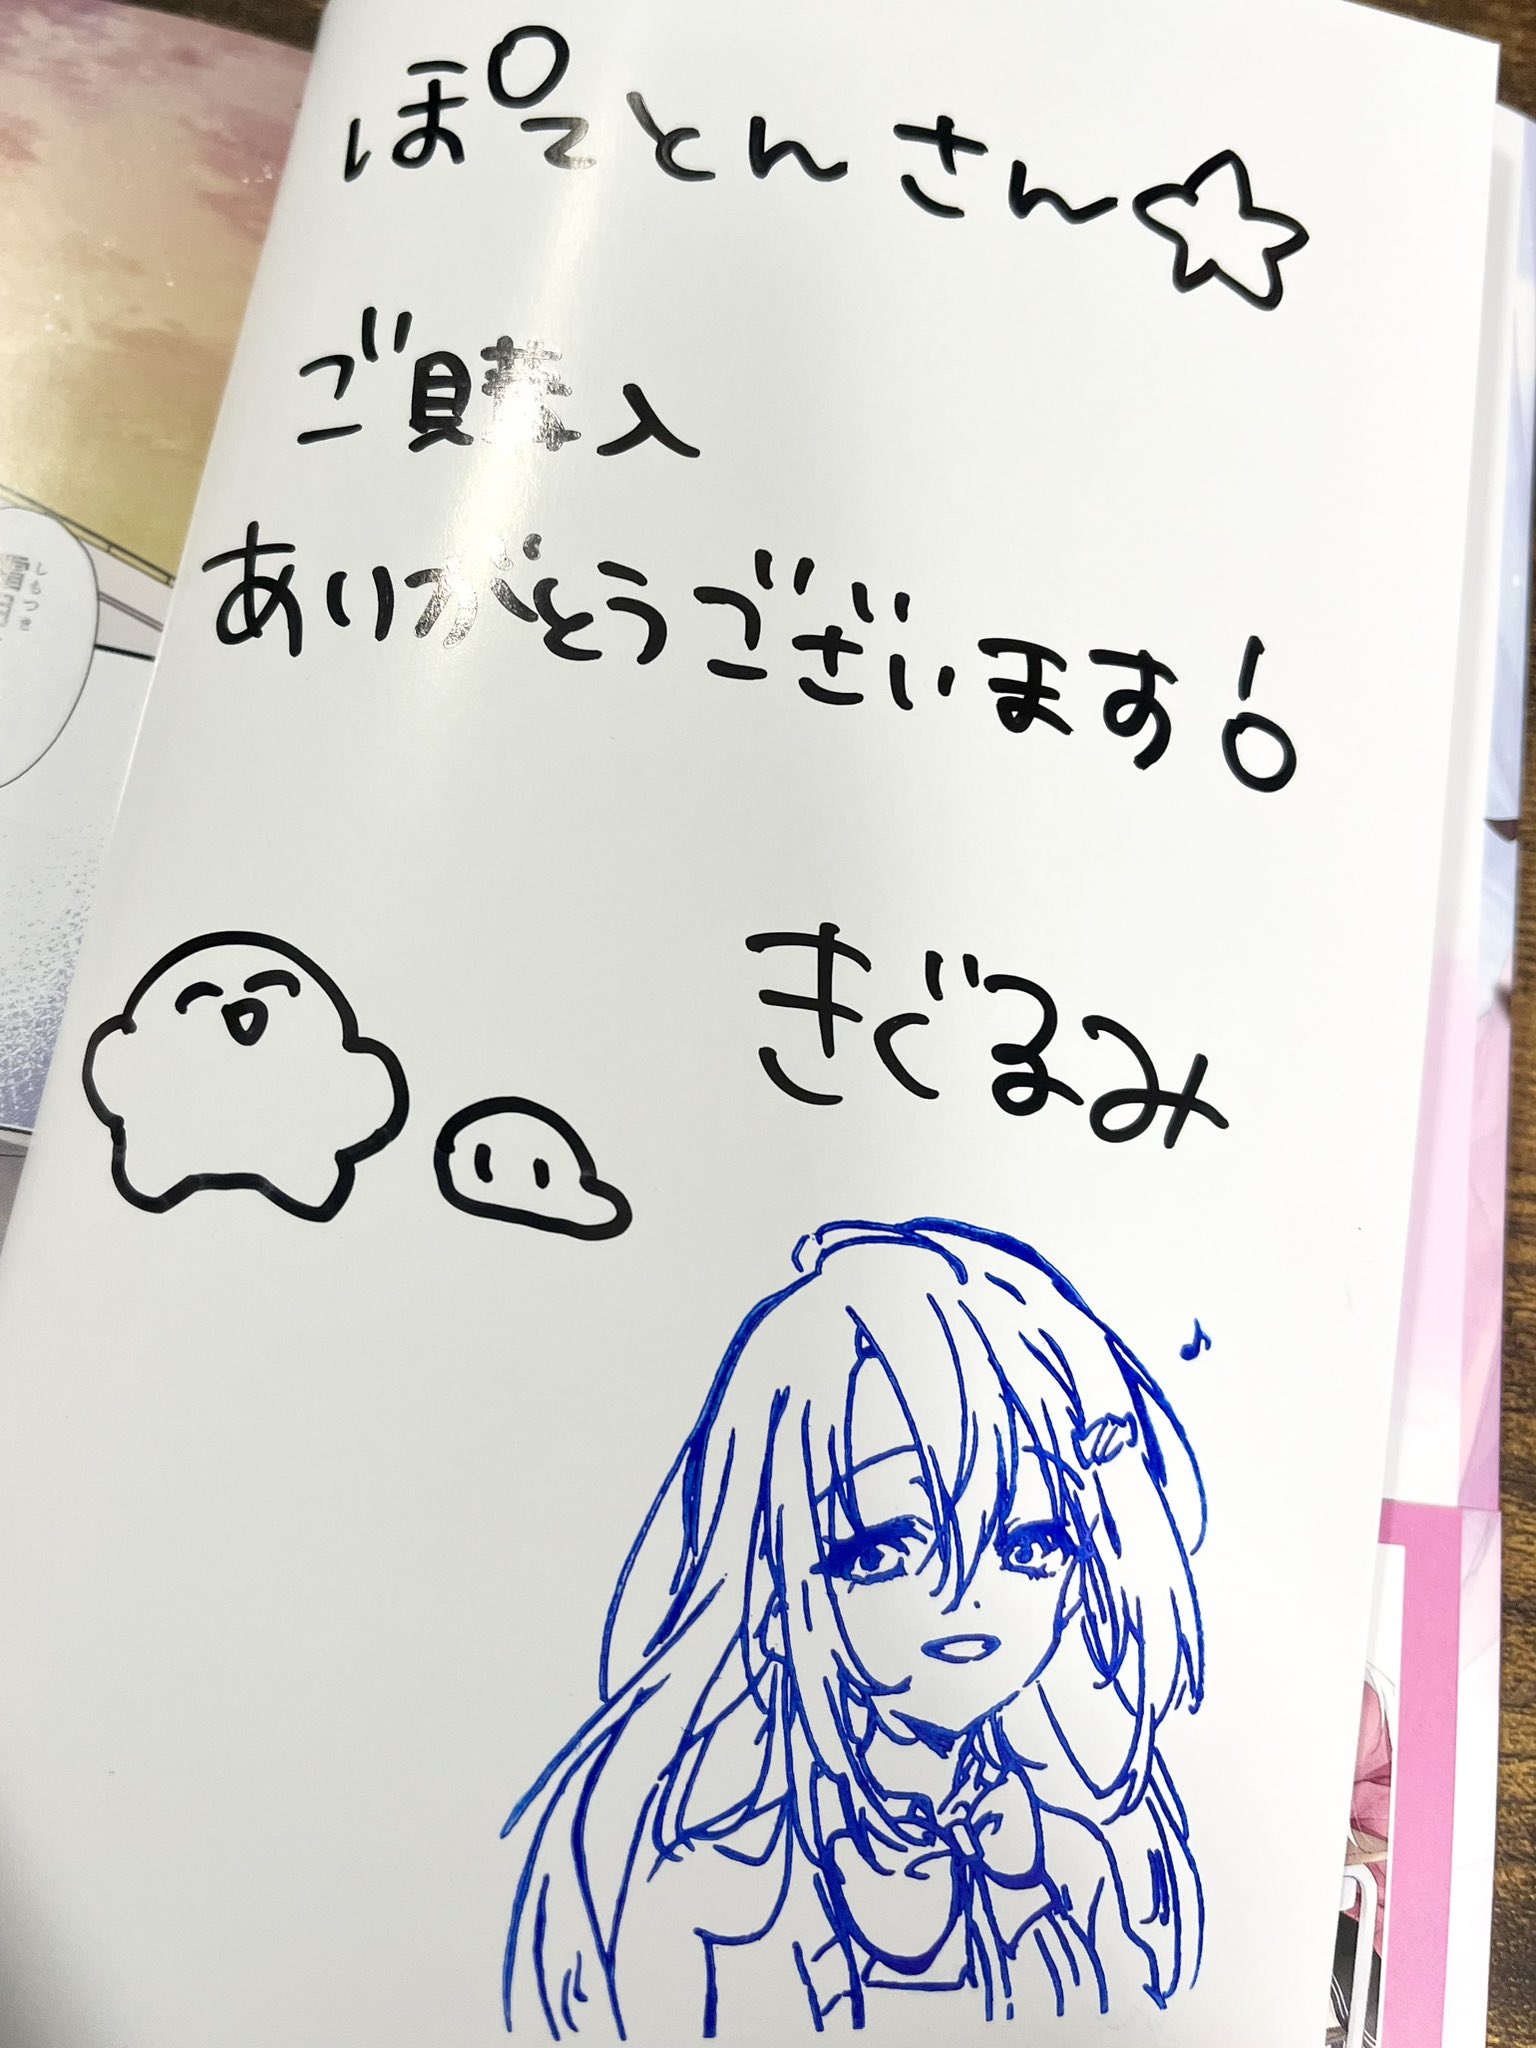 ぽてとんさん☆
ご購入
ありがとうございます!
きぐるみ
しもつき